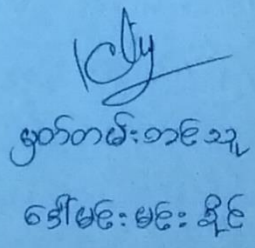 မှတ်တမ်းတင်သူ
ဒေါ်မင်းမင်းခိုင်